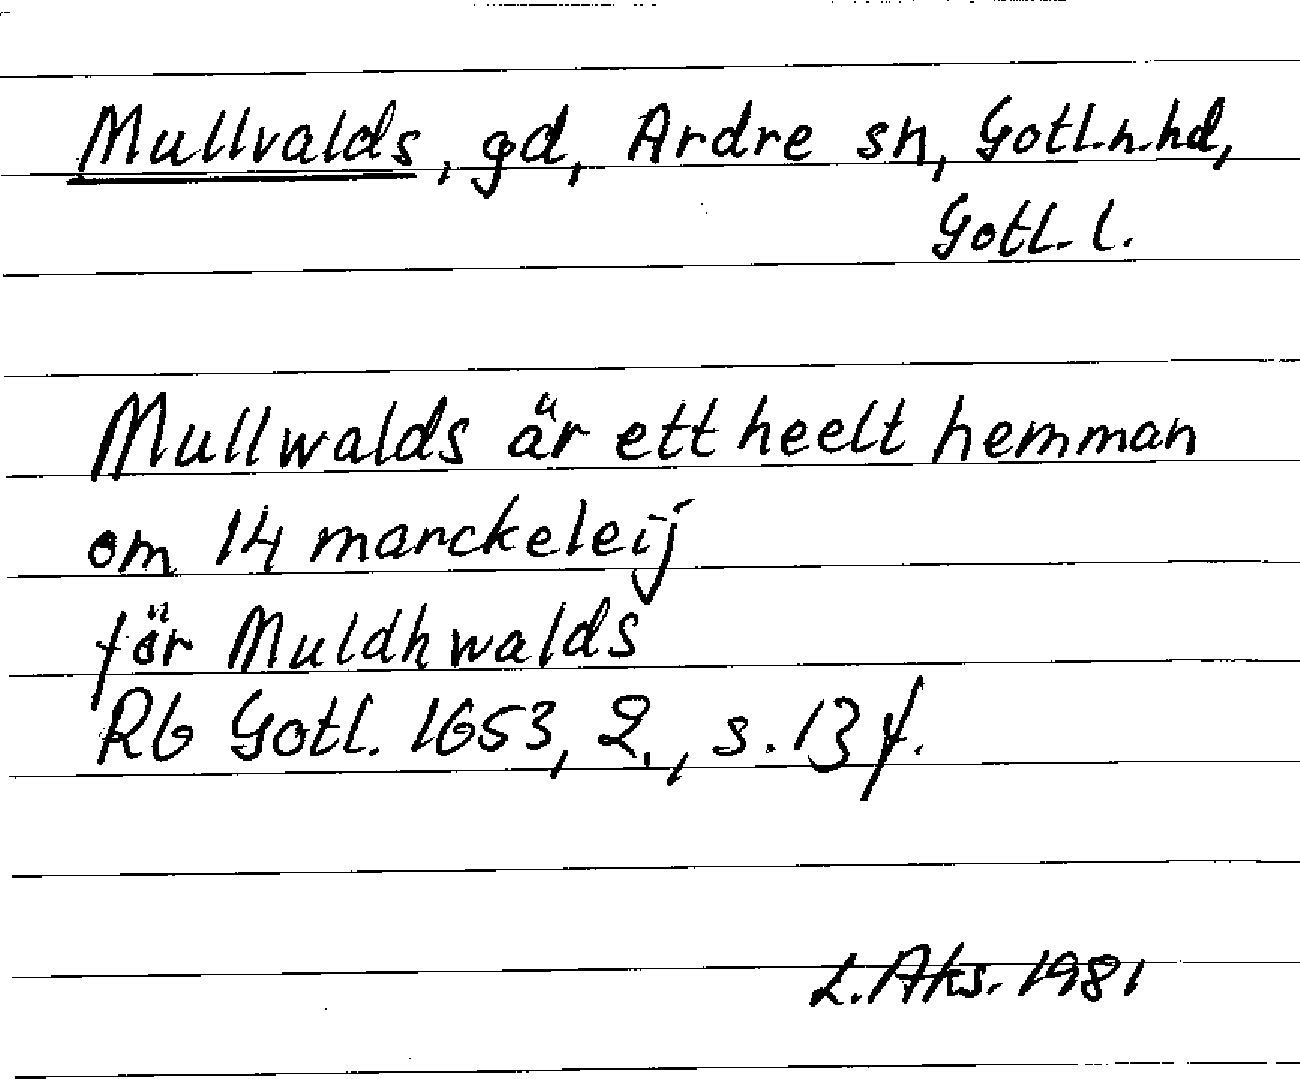 Mullvalds, gd, Ardre sn, Gotl.n.hd,
Gotl. l.
Mullwalds är ett heelt hemman
om 14 marckeleij
för Muldhwalds
Rb Gotl. 1653, 2., s. 13 f.
L. Aks. 1981